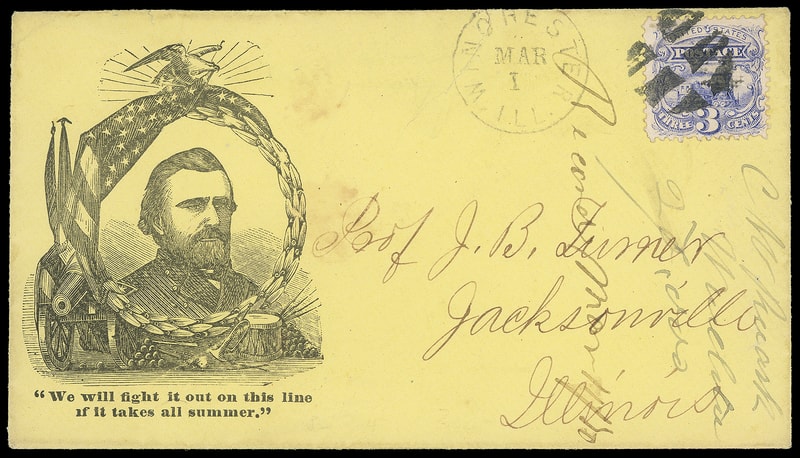 WINCHESTER ILL.
MAR
1
UNITED STATES
POSTAGE
THREE 3 CENTS
Prof J. B. Turner
Jacksonville
Illinois
"We will fight it out on this line
if it takes all summer."